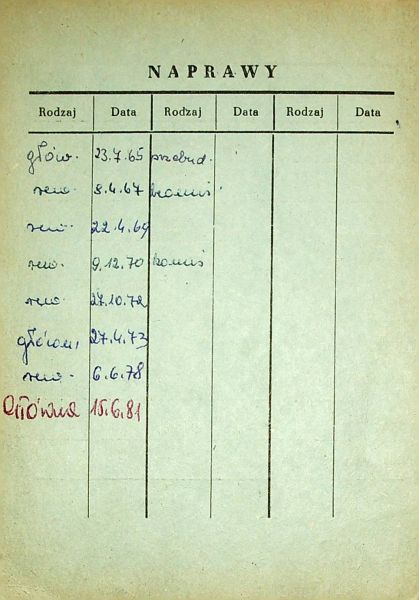 NAPRAWY
Rodzaj Data Rodzaj Data Rodzaj Data
głów. 23.7.65 przebud.
rew. 8.4.67
rew. 22.4.69
rew. 9.12.70
rew. 27.10.72
główn. 27.4.73
rew. 6.6.78
Główna 15.6.81